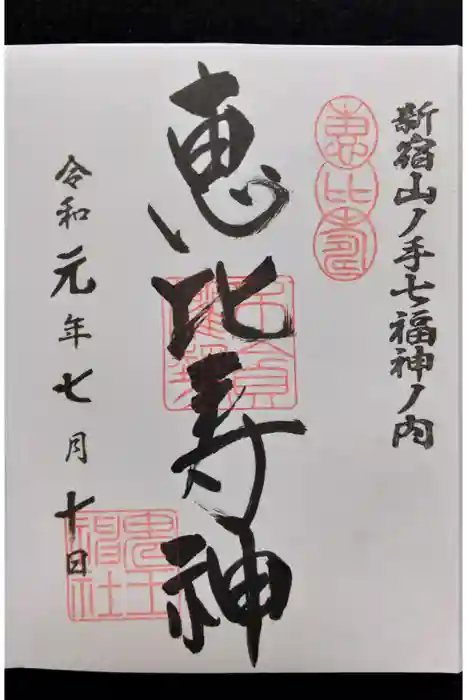 新宿山ノ手七福神ノ内
恵比寿
恵比寿神
令和元年七月十日
鬼王神社